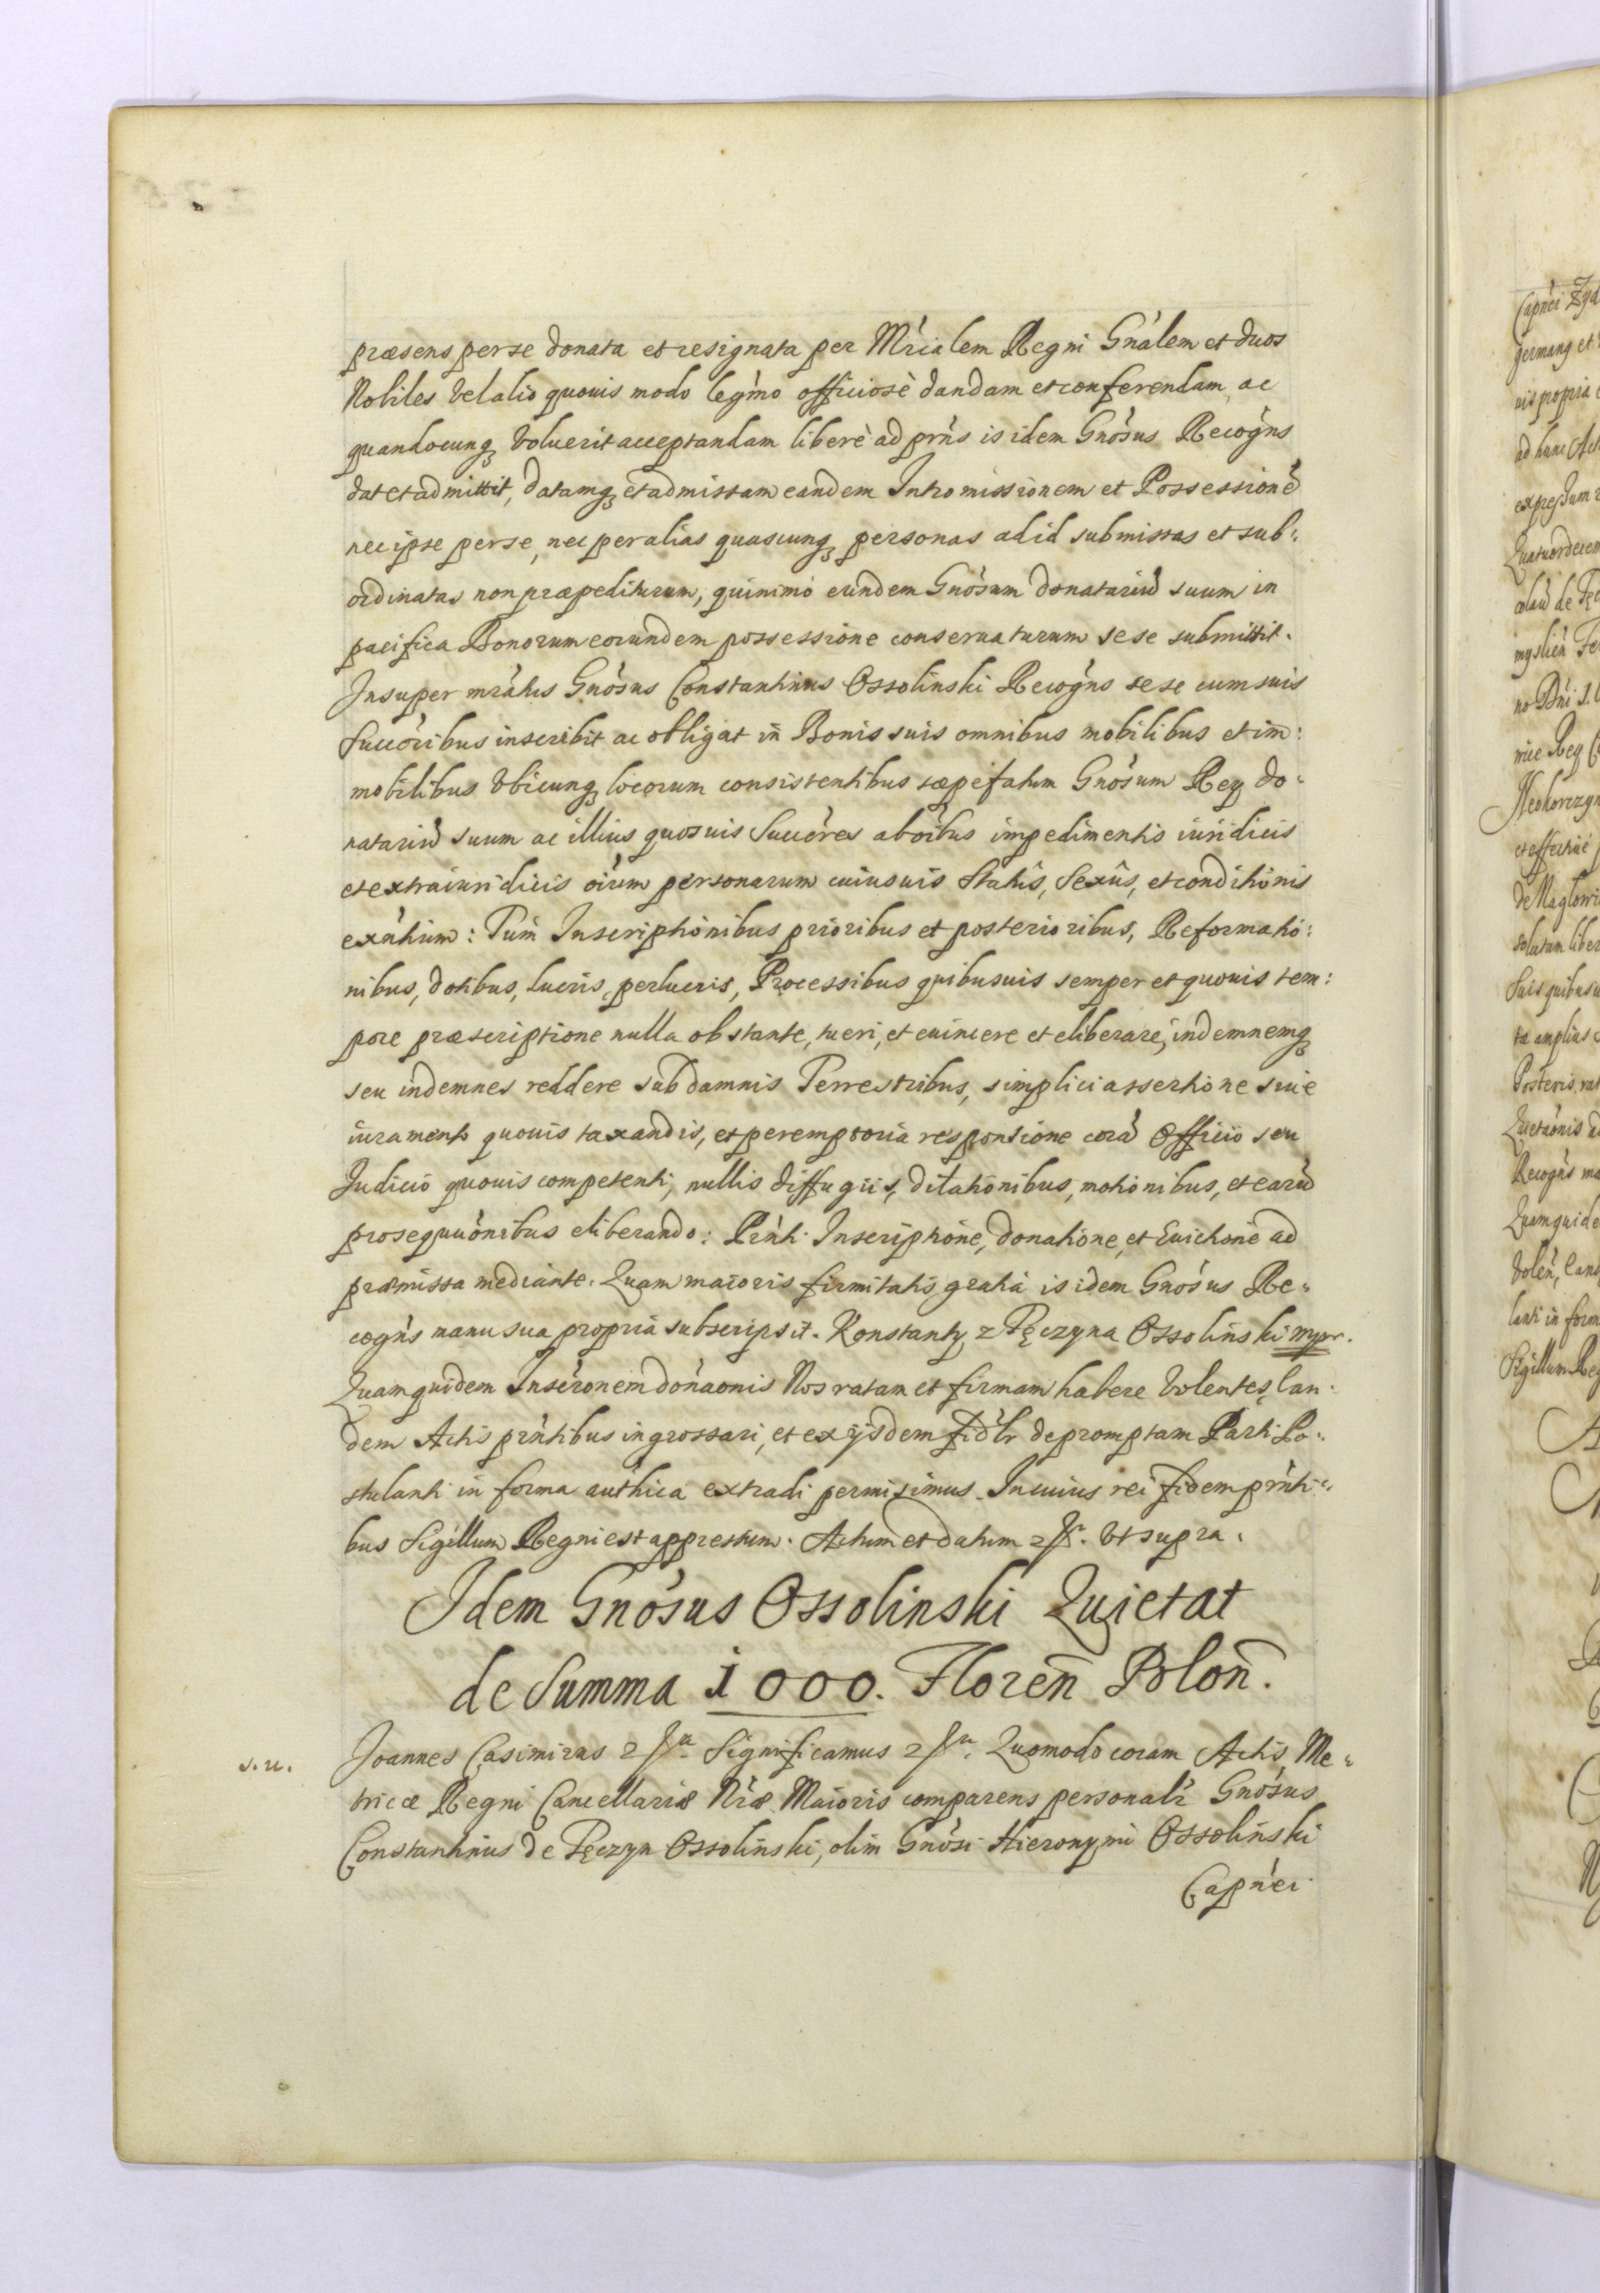 præsens per se donata et resignata per Mr̃ialem Regni Gnãlem et duos
Nobiles vel alio quouis modo legmo officiosè dandam et conferendam, ac
quandocunq voluerit acceptandam liberè ad prñs is idem Gnosus Recogns
dat et admittit, datamq et admissam eandem Intromissionem et Possessionẽ
nec ipse per se, nec per alias quascunq personas ad id submissas et sub:
ordinatas non præpediturum, quinimo eundem Gnosum donatariũ suum in
pacifica Bonorum eorundem possessione conseruaturum sese submittit.
Insuper mratus Gnosus Constantinus Ossolinski Recogns sese cum suis
Succoribus inscribit ac obligat in Bonis suis omnibus mobilibus et im:
mobilibus vbicunq locorum consistentibus sæpefatum Gnosum Reg do:
natariũ suum ac illius quosuis Succores ab oibus impedimentis iuridicis
et extraiuridicis oium personarum cuiusuis Statûs, Sexûs, et conditionis
exntium: Tum Inscriptionibus prioribus et posterioribus, Reformatio:
nibus, dotibus, lucris, perlucris, Processibus quibusuis semper et quouis tem:
pore præscriptione nulla obstante, tueri, et euincere et eliberare, indemnemq
seu indemnes reddere sub damnis Terrestribus, simplici assertione siue
iuramento quouis taxandis, et peremptoria responsione corã Officio seu
Judicio quouis competenti, nullis diffugiis, dilationibus, motionibus, et earũ
prosequuõnibus eliberando: Prnti Inscriptione, donatione, et Euictione ad
præmissa mediante. Quam maioris firmitatis gratiâ is idem Gnosus Re:
cogns manu sua propriâ subscripsit. Konstanty z Tęczyna Ossolinski mpr.
Quamquidem Inscronem donaonis Nos ratam et firmam habere volentes, ean:
dem Actis prntibus ingrossari, et ex ijsdem fidelr depromptam Parti Po:
stulanti in forma authica extradi permisimus. In cuius rei fidem prnti:
bus Sigillum Regni est appressum. Actum et datum . Vt supra.
Idem Gnosus Ossolinski Quietat
de Summa 1000. Floren Polon.
s.r. Joannes Casimirus Significamus Quomodo coram Actis Me:
tricæ Regni Cancellariæ Nræ Maioris comparens personalr Gnosus
Constantinus de Tęczyn Ossolinski, olim Gnosi Hieronymi Ossolinski
Capnei
Capnei
germang et
uis propria
ad hanc Act
expressum
Quatuordecem
de Tęc
no Dñi 1.
Reg
Neokorczyn
et effectiue
de Maglow
solutam liber
Suis quibusu
tæ amplius
Posteris rat
Quietaonis
Recogns ma
Quamquide
Volen,
lanti in form
Sigillum Reg